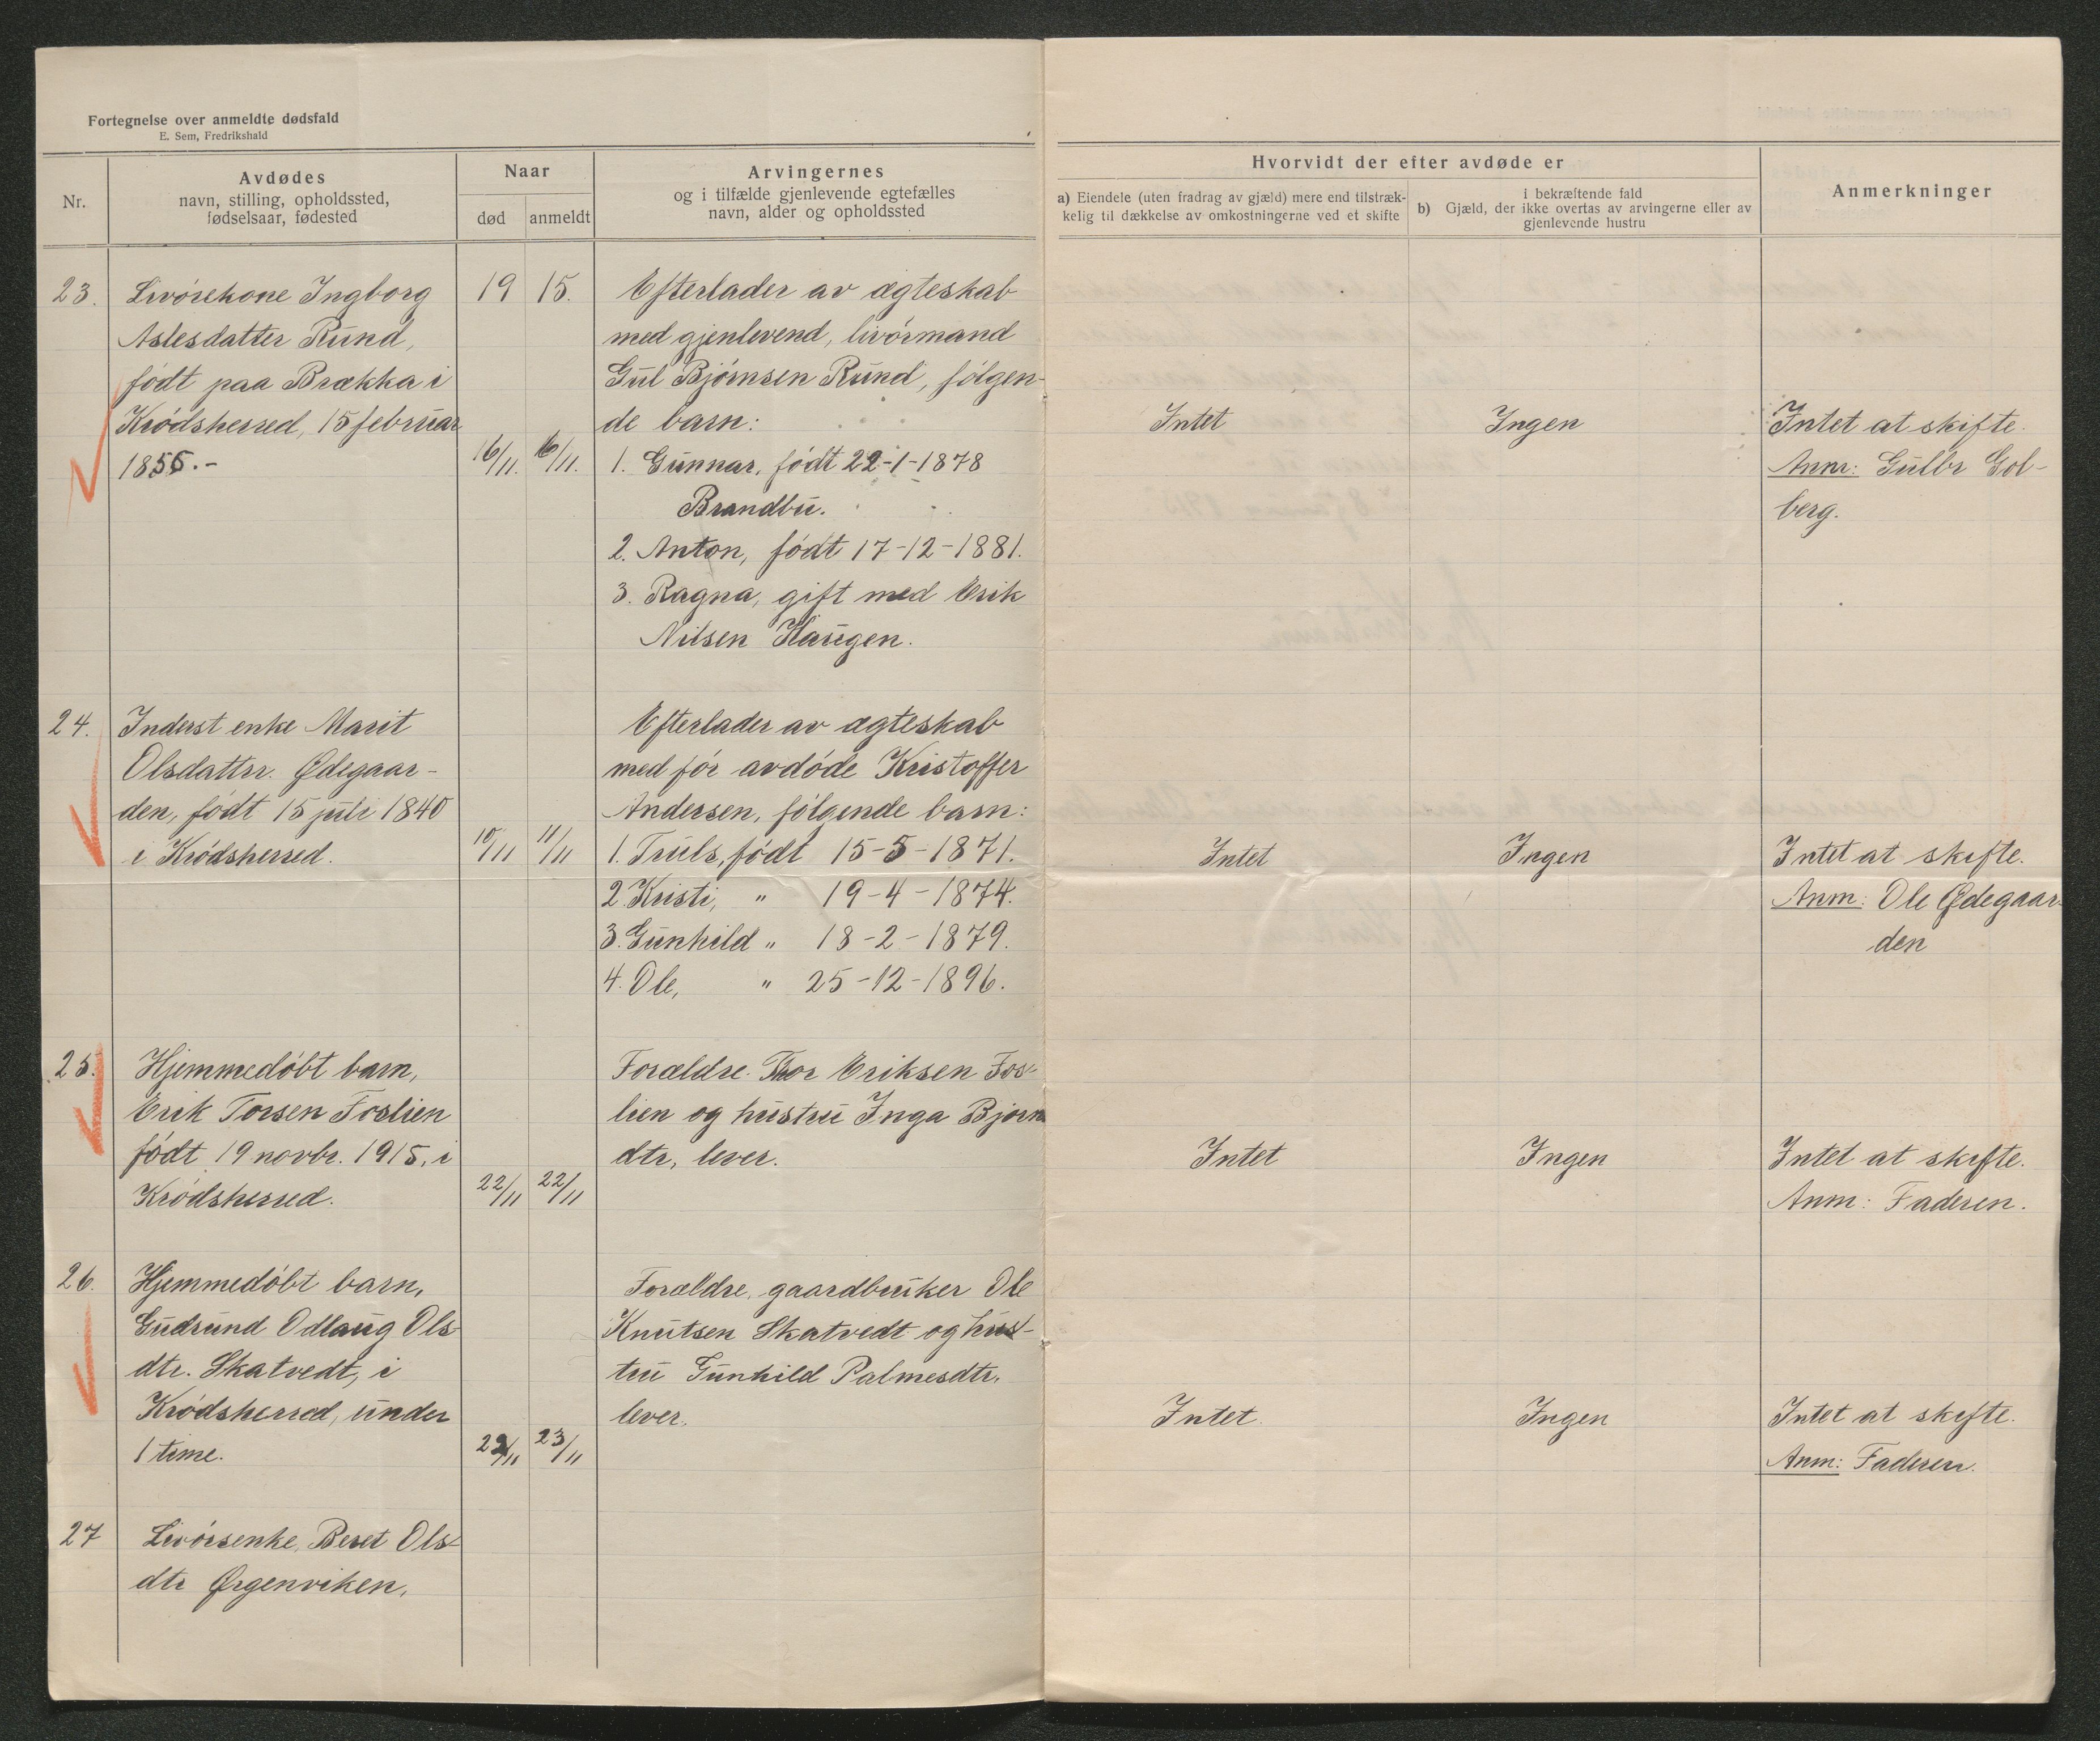 Fortegnelse over anmeldte dødsfald
E. Sem, Fredrikshald
Nr.
Avdødes
navn, stilling, opholdssted,
fødselsaar, fødested
Naar
død
anmeldt
Arvingernes
og i tilfælde gjenlevende egtefælles
navn, alder og opholdssted
Hvorvidt der efter avdøde er
a) Eiendele (uten fradrag av gjæld) mere end tilstræk-
kelig til dækkelse av omkostningerne ved et skifte
i bekræftende fald
b) Gjæld, der ikke overtas av arvingerne eller av
gjenlevende hustru
Anmerkninger
23.
Livörekone Ingborg
Aslesdatter Rund,
födt paa Brækka i
Krödsherred, 15 februar
1855.-
19 15.
16/11.
16/11.
Efterlader av ægteskab
med gjenlevend, livörmand
Gul Björnsen Rund, fölgen-
de barn:
1. Gunnar, födt 22-1-1878
Brandbu.
2. Anton, födt 17-12-1881.
3. Ragna, gift med Erik
Nilsen Haugen.
Intet
Ingen
Intet at skifte.
Anm: Gulbr Gol-
berg.
24.
Inderst enke Marit
Olsdatter. Ødegaar-
den, födt 15 juli 1840
i Krödsherred.
10/11
11/11
Efterlader av ægteskab
med för avdöde Kristoffer
Andersen, fölgende barn:
1. Truls, födt 15-5-1871.
2. Kristi, " 19-4-1874.
3. Gunhild " 18-2-1879.
4. Ole, " 25-12-1896.
Intet
Ingen
Intet at skifte.
Anm: Ole Ødegaar-
den
25.
Hjemmedöbt barn,
Erik Torsen Foslien
födt 19 novbr. 1915, i
Krödsherred.
22/11
22/11
Forældre. Thor Eriksen Fos-
lien og hustru Inga Bjørns
dtr, lever.
Intet
Ingen
Intet at skifte.
Anm: Faderen.
26.
Hjemmedöbt barn,
Gudrund Odlaug Ols-
dtr. Skatvedt, i
Krödsherred, under
1 time.
22/11
23/11
Forældre, gaardbruker Ole
Knutsen Skatvedt og hus-
tru Gunhild Palmesdtr,
lever.
Intet.
Ingen
Intet at skifte.
Anm: Faderen.
27
Livörsenke, Beret Ols-
dtr Ørgenviken,